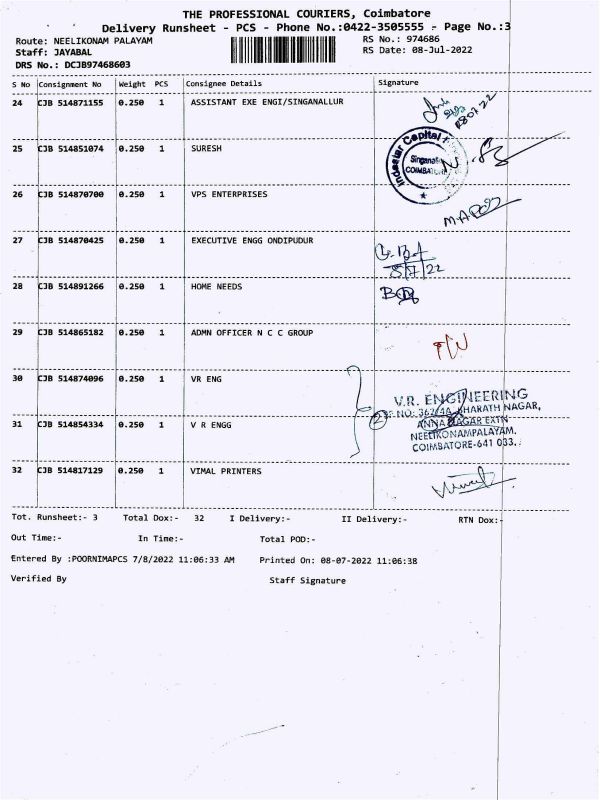 THE PROFESSIONAL COURIERS, Coimbatore
Delivery Runsheet - PCS - Phone No.:0422-3505555 - Page No.:3
Route: NEELIKONAM PALAYAM RS No.: 974686
Staff: JAYABAL RS Date: 08-Jul-2022
DRS No.: DCJB97468603
S No Consignment No Weight PCS Consignee Details Signature
24 CJB 514871155 0.250 1 ASSISTANT EXE ENGI/SINGANALLUR
25 CJB 514851074 0.250 1 SURESH
Indestar Capital
Singanal
COIMBAT
26 CJB 514870700 0.250 1 VPS ENTERPRISES
27 CJB 514870425 0.250 1 EXECUTIVE ENGG ONDIPUDUR
8/7/22
28 CJB 514891266 0.250 1 HOME NEEDS
29 CJB 514865182 0.250 1 ADMN OFFICER N C C GROUP
30 CJB 514874096 0.250 1 VR ENG
V.R. ENGINEERING
S.F. NO: 362/4A, BHARATH NAGAR,
31 CJB 514854334 0.250 1 V R ENGG 2
ANNA NAGAR EXTN
NEELIKONAMPALAYAM.
COIMBATORE-641 033.
32 CJB 514817129 0.250 1 VIMAL PRINTERS
Tot. Runsheet:- 3 Total Dox:- 32 I Delivery:- II Delivery:- RTN Dox:-
Out Time:- In Time:- Total POD:-
Entered By :POORNIMAPCS 7/8/2022 11:06:33 AM Printed On: 08-07-2022 11:06:38
Verified By Staff Signature